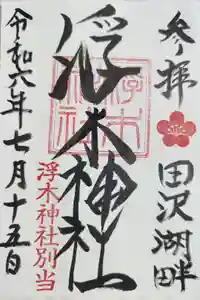 参拝
田沢湖畔
浮木神社
浮木神社
浮木神社別当
令和六年七月十五日